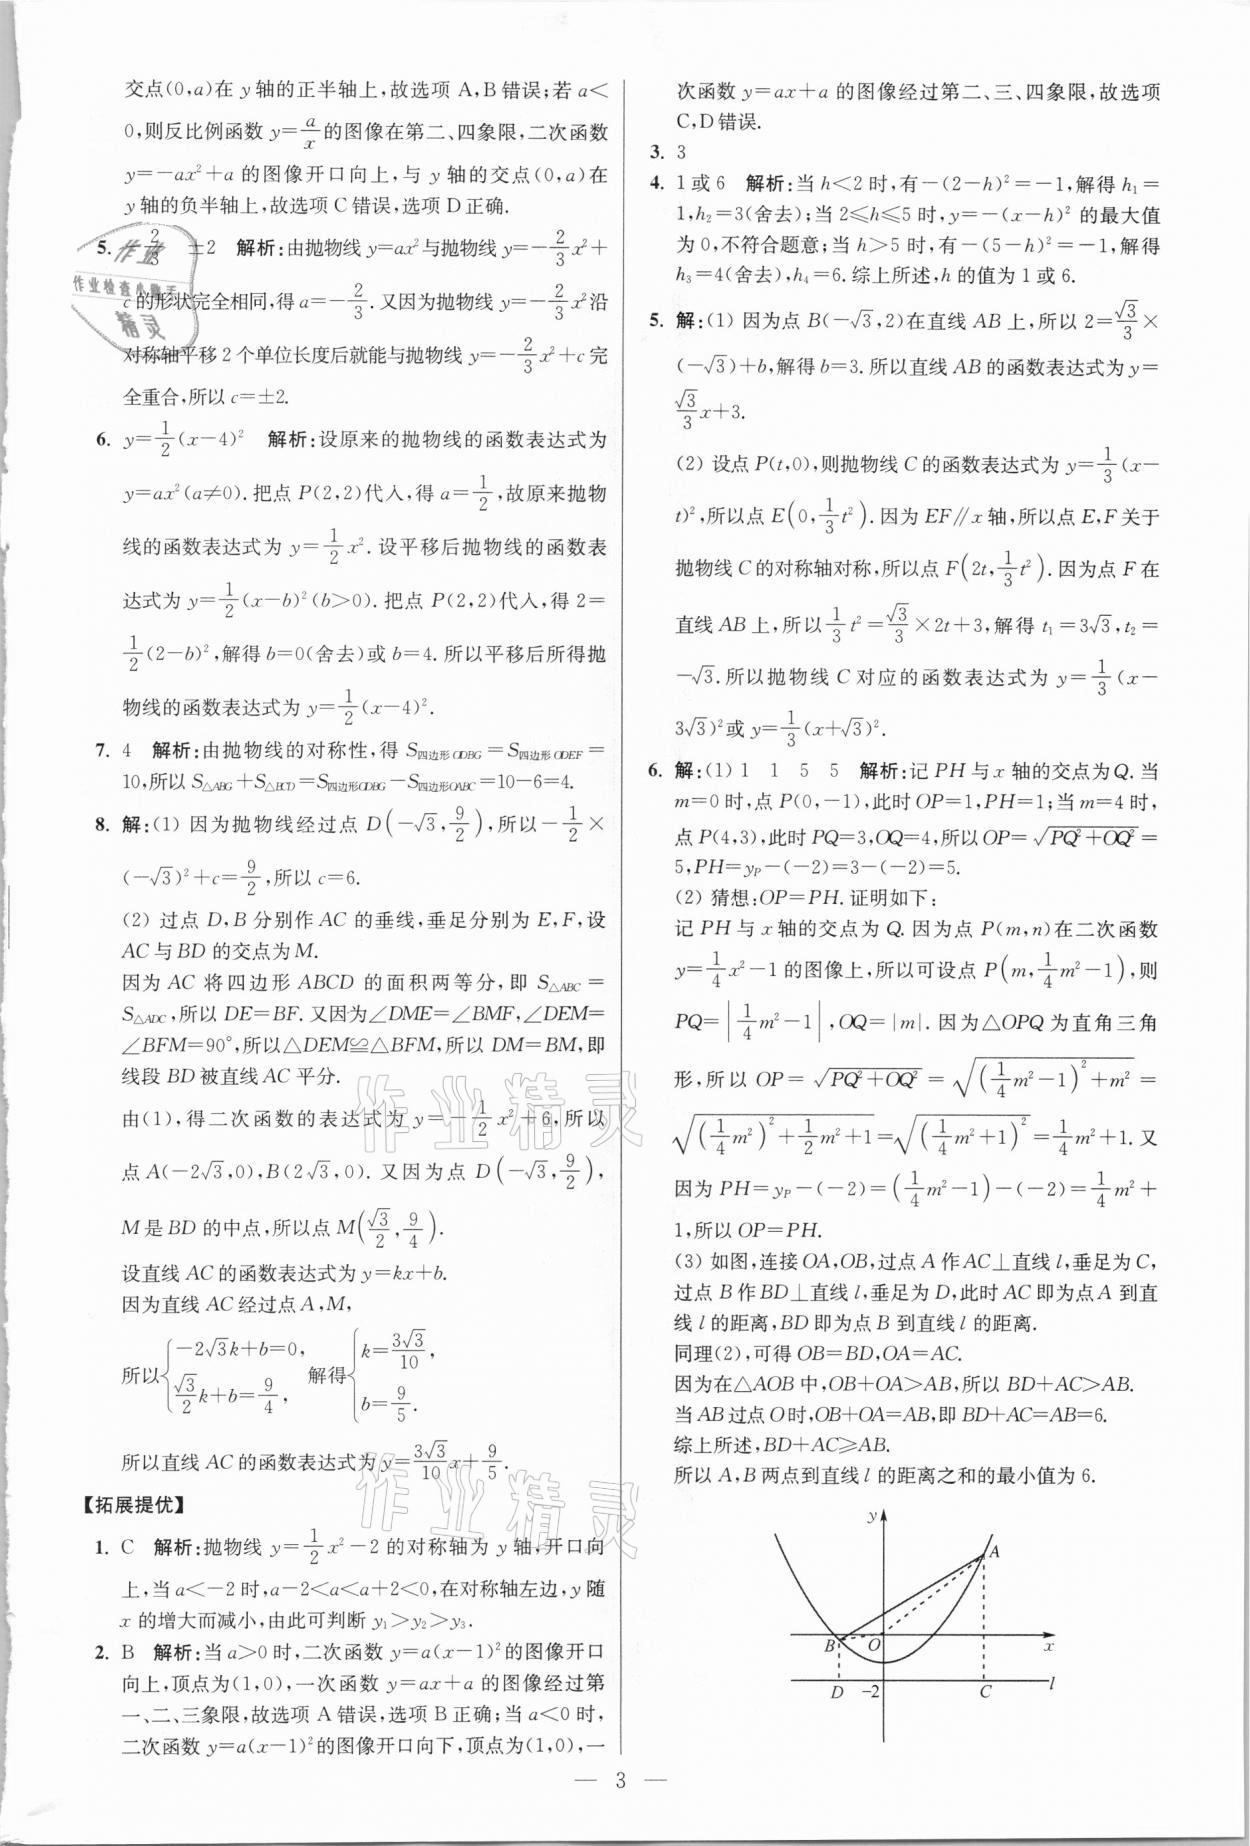 交点(0,a)在 y 轴的正半轴上,故选项 A,B 错误;若 a<
0,则反比例函数 y=a/x的图像在第二、四象限,二次函数
y=-ax²+a 的图像开口向上,与 y 轴的交点(0,a)在
y 轴的负半轴上,故选项 C 错误,选项 D 正确.
5. -2/3 ±2 解析:由抛物线 y=ax²与抛物线 y=-2/3x²+
c 的形状完全相同,得 a=-2/3.又因为抛物线 y=-2/3x²沿
对称轴平移 2 个单位长度后就能与抛物线 y=-2/3x²+c 完
全重合,所以 c=±2.
6. y=1/2(x-4)² 解析:设原来的抛物线的函数表达式为
y=ax²(a≠0).把点 P(2,2)代入,得 a=1/2,故原来抛物
线的函数表达式为 y=1/2x².设平移后抛物线的函数表
达式为 y=1/2(x-b)²(b>0).把点 P(2,2)代入,得 2=
1/2(2-b)²,解得 b=0(舍去)或 b=4.所以平移后所得抛
物线的函数表达式为 y=1/2(x-4)².
7. 4 解析:由抛物线的对称性,得 S四边形ODBG=S四边形ODEF=
10,所以 S△ABG+S△BCD=S四边形ODBG-S四边形OABC=10-6=4.
8. 解:(1) 因为抛物线经过点 D(-√3,9/2),所以-1/2×
(-√3)²+c=9/2,所以 c=6.
(2) 过点 D,B 分别作 AC 的垂线,垂足分别为 E,F,设
AC 与 BD 的交点为 M.
因为 AC 将四边形 ABCD 的面积两等分,即 S△ABC=
S△ADC,所以 DE=BF.又因为∠DME=∠BMF,∠DEM=
∠BFM=90°,所以△DEM≌△BFM,所以 DM=BM,即
线段 BD 被直线 AC 平分.
由(1),得二次函数的表达式为 y=-1/2x²+6,所以
点 A(-2√3,0),B(2√3,0).又因为点 D(-√3,9/2),
M 是 BD 的中点,所以点 M(√3/2,9/4).
设直线 AC 的函数表达式为 y=kx+b.
因为直线 AC 经过点 A,M,
所以{-2√3k+b=0, √3/2k+b=9/4, 解得{k=3√3/10, b=9/5.
所以直线 AC 的函数表达式为 y=3√3/10x+9/5.
【拓展提优】
1. C 解析:抛物线 y=1/2x²-2 的对称轴为 y 轴,开口向
上,当 a<-2 时,a-2<a<a+2<0,在对称轴左边,y 随
x 的增大而减小,由此可判断 y₁>y₂>y₃.
2. B 解析:当 a>0 时,二次函数 y=a(x-1)²的图像开口
向上,顶点为(1,0),一次函数 y=ax+a 的图像经过第
一、二、三象限,故选项 A 错误,选项 B 正确;当 a<0 时,
二次函数 y=a(x-1)²的图像开口向下,顶点为(1,0),一
次函数 y=ax+a 的图像经过第二、三、四象限,故选项
C,D 错误.
3. 3
4. 1 或 6 解析:当 h<2 时,有-(2-h)²=-1,解得 h₁=
1,h₂=3(舍去);当 2≤h≤5 时,y=-(x-h)² 的最大值
为 0,不符合题意;当 h>5 时,有-(5-h)²=-1,解得
h₃=4(舍去),h₄=6.综上所述,h 的值为 1 或 6.
5. 解:(1) 因为点 B(-√3,2)在直线 AB 上,所以 2=√3/3×
(-√3)+b,解得 b=3.所以直线 AB 的函数表达式为 y=
√3/3x+3.
(2) 设点 P(t,0),则抛物线 C 的函数表达式为 y=1/3(x-
t)²,所以点 E(0,1/3t²).因为 EF∥x 轴,所以点 E,F 关于
抛物线 C 的对称轴对称,所以点 F(2t,1/3t²).因为点 F 在
直线 AB 上,所以1/3t²=√3/3×2t+3,解得 t₁=3√3,t₂=
-√3.所以抛物线 C 对应的函数表达式为 y=1/3(x-
3√3)²或 y=1/3(x+√3)².
6. 解:(1) 1 1 5 5 解析:记 PH 与 x 轴的交点为 Q.当
m=0 时,点 P(0,-1),此时 OP=1,PH=1;当 m=4 时,
点 P(4,3),此时 PQ=3,OQ=4,所以 OP=√(PQ²+OQ²)=
5,PH=yP-(-2)=3-(-2)=5.
(2) 猜想:OP=PH.证明如下:
记 PH 与 x 轴的交点为 Q.因为点 P(m,n)在二次函数
y=1/4x²-1 的图像上,所以可设点 P(m,1/4m²-1),则
PQ=|1/4m²-1|,OQ=|m|.因为△OPQ 为直角三角
形,所以 OP=√(PQ²+OQ²)=√((1/4m²-1)²+m²)=
√((1/4m²)²+1/2m²+1)=√((1/4m²+1)²)=1/4m²+1.又
因为 PH=yP-(-2)=(1/4m²-1)-(-2)=1/4m²+
1,所以 OP=PH.
(3) 如图,连接 OA,OB,过点 A 作 AC⊥直线 l,垂足为 C,
过点 B 作 BD⊥直线 l,垂足为 D,此时 AC 即为点 A 到直
线 l 的距离,BD 即为点 B 到直线 l 的距离.
同理(2),可得 OB=BD,OA=AC.
因为在△AOB 中,OB+OA>AB,所以 BD+AC>AB.
当 AB 过点 O 时,OB+OA=AB,即 BD+AC=AB=6.
综上所述,BD+AC≥AB.
所以 A,B 两点到直线 l 的距离之和的最小值为 6.
y
A
B O x
D -2 C l
— 3 —
作业
作业检查小助手
精灵
作业精灵
作业精灵